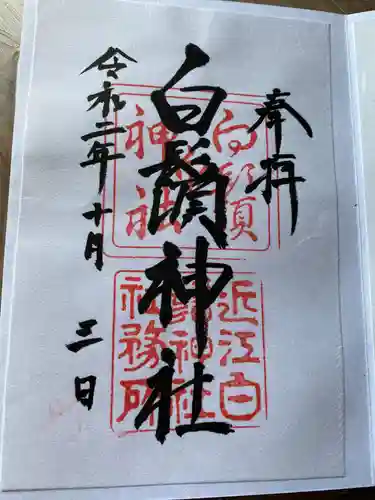 奉拝
白鬚神社
令和二年十月三日
白鬚
神社
近江白
鬚神社
社務所